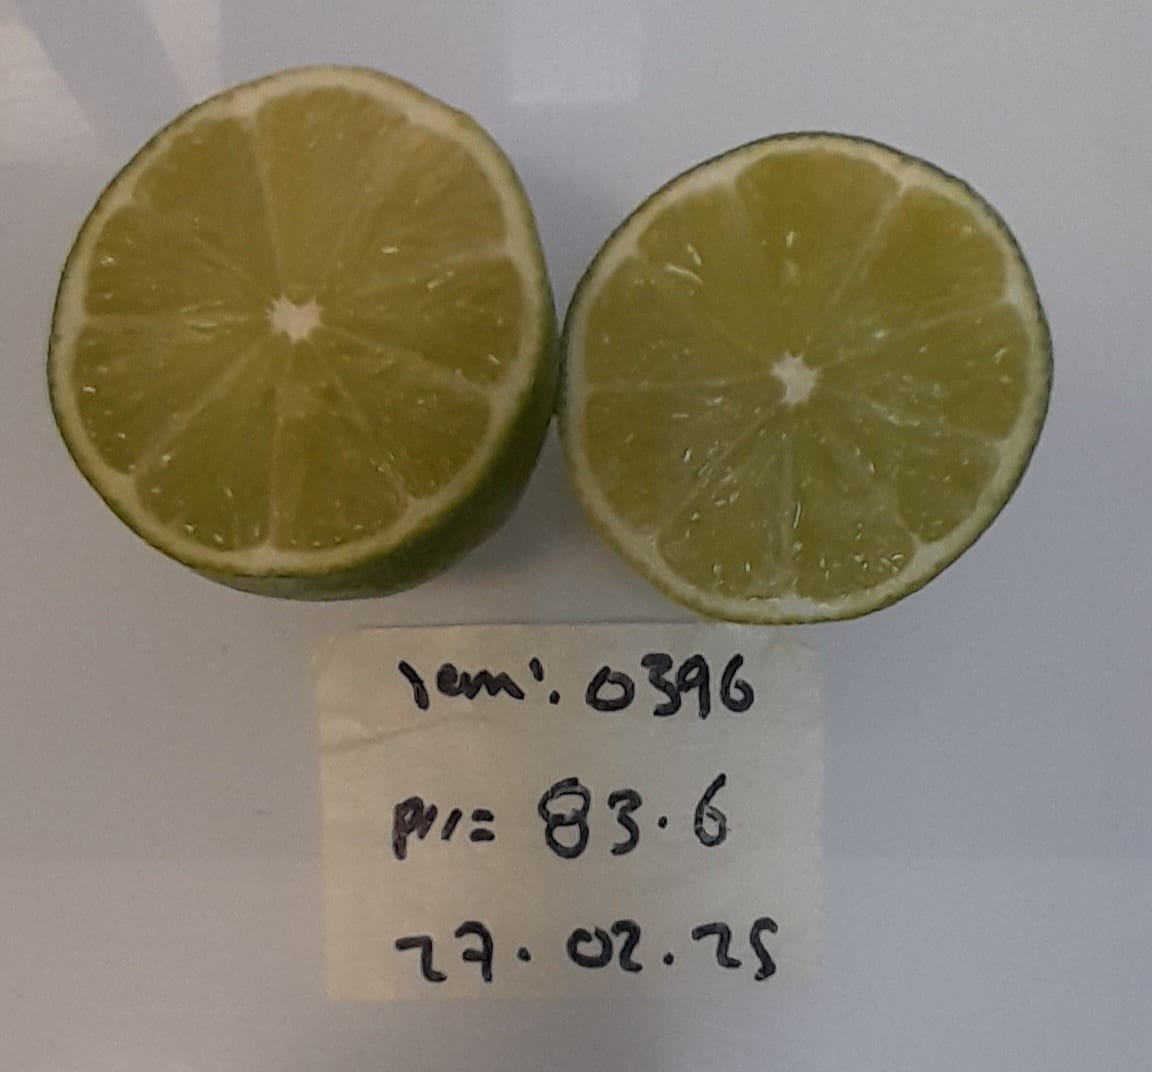 Iem: 0396
83.6
27.02.25